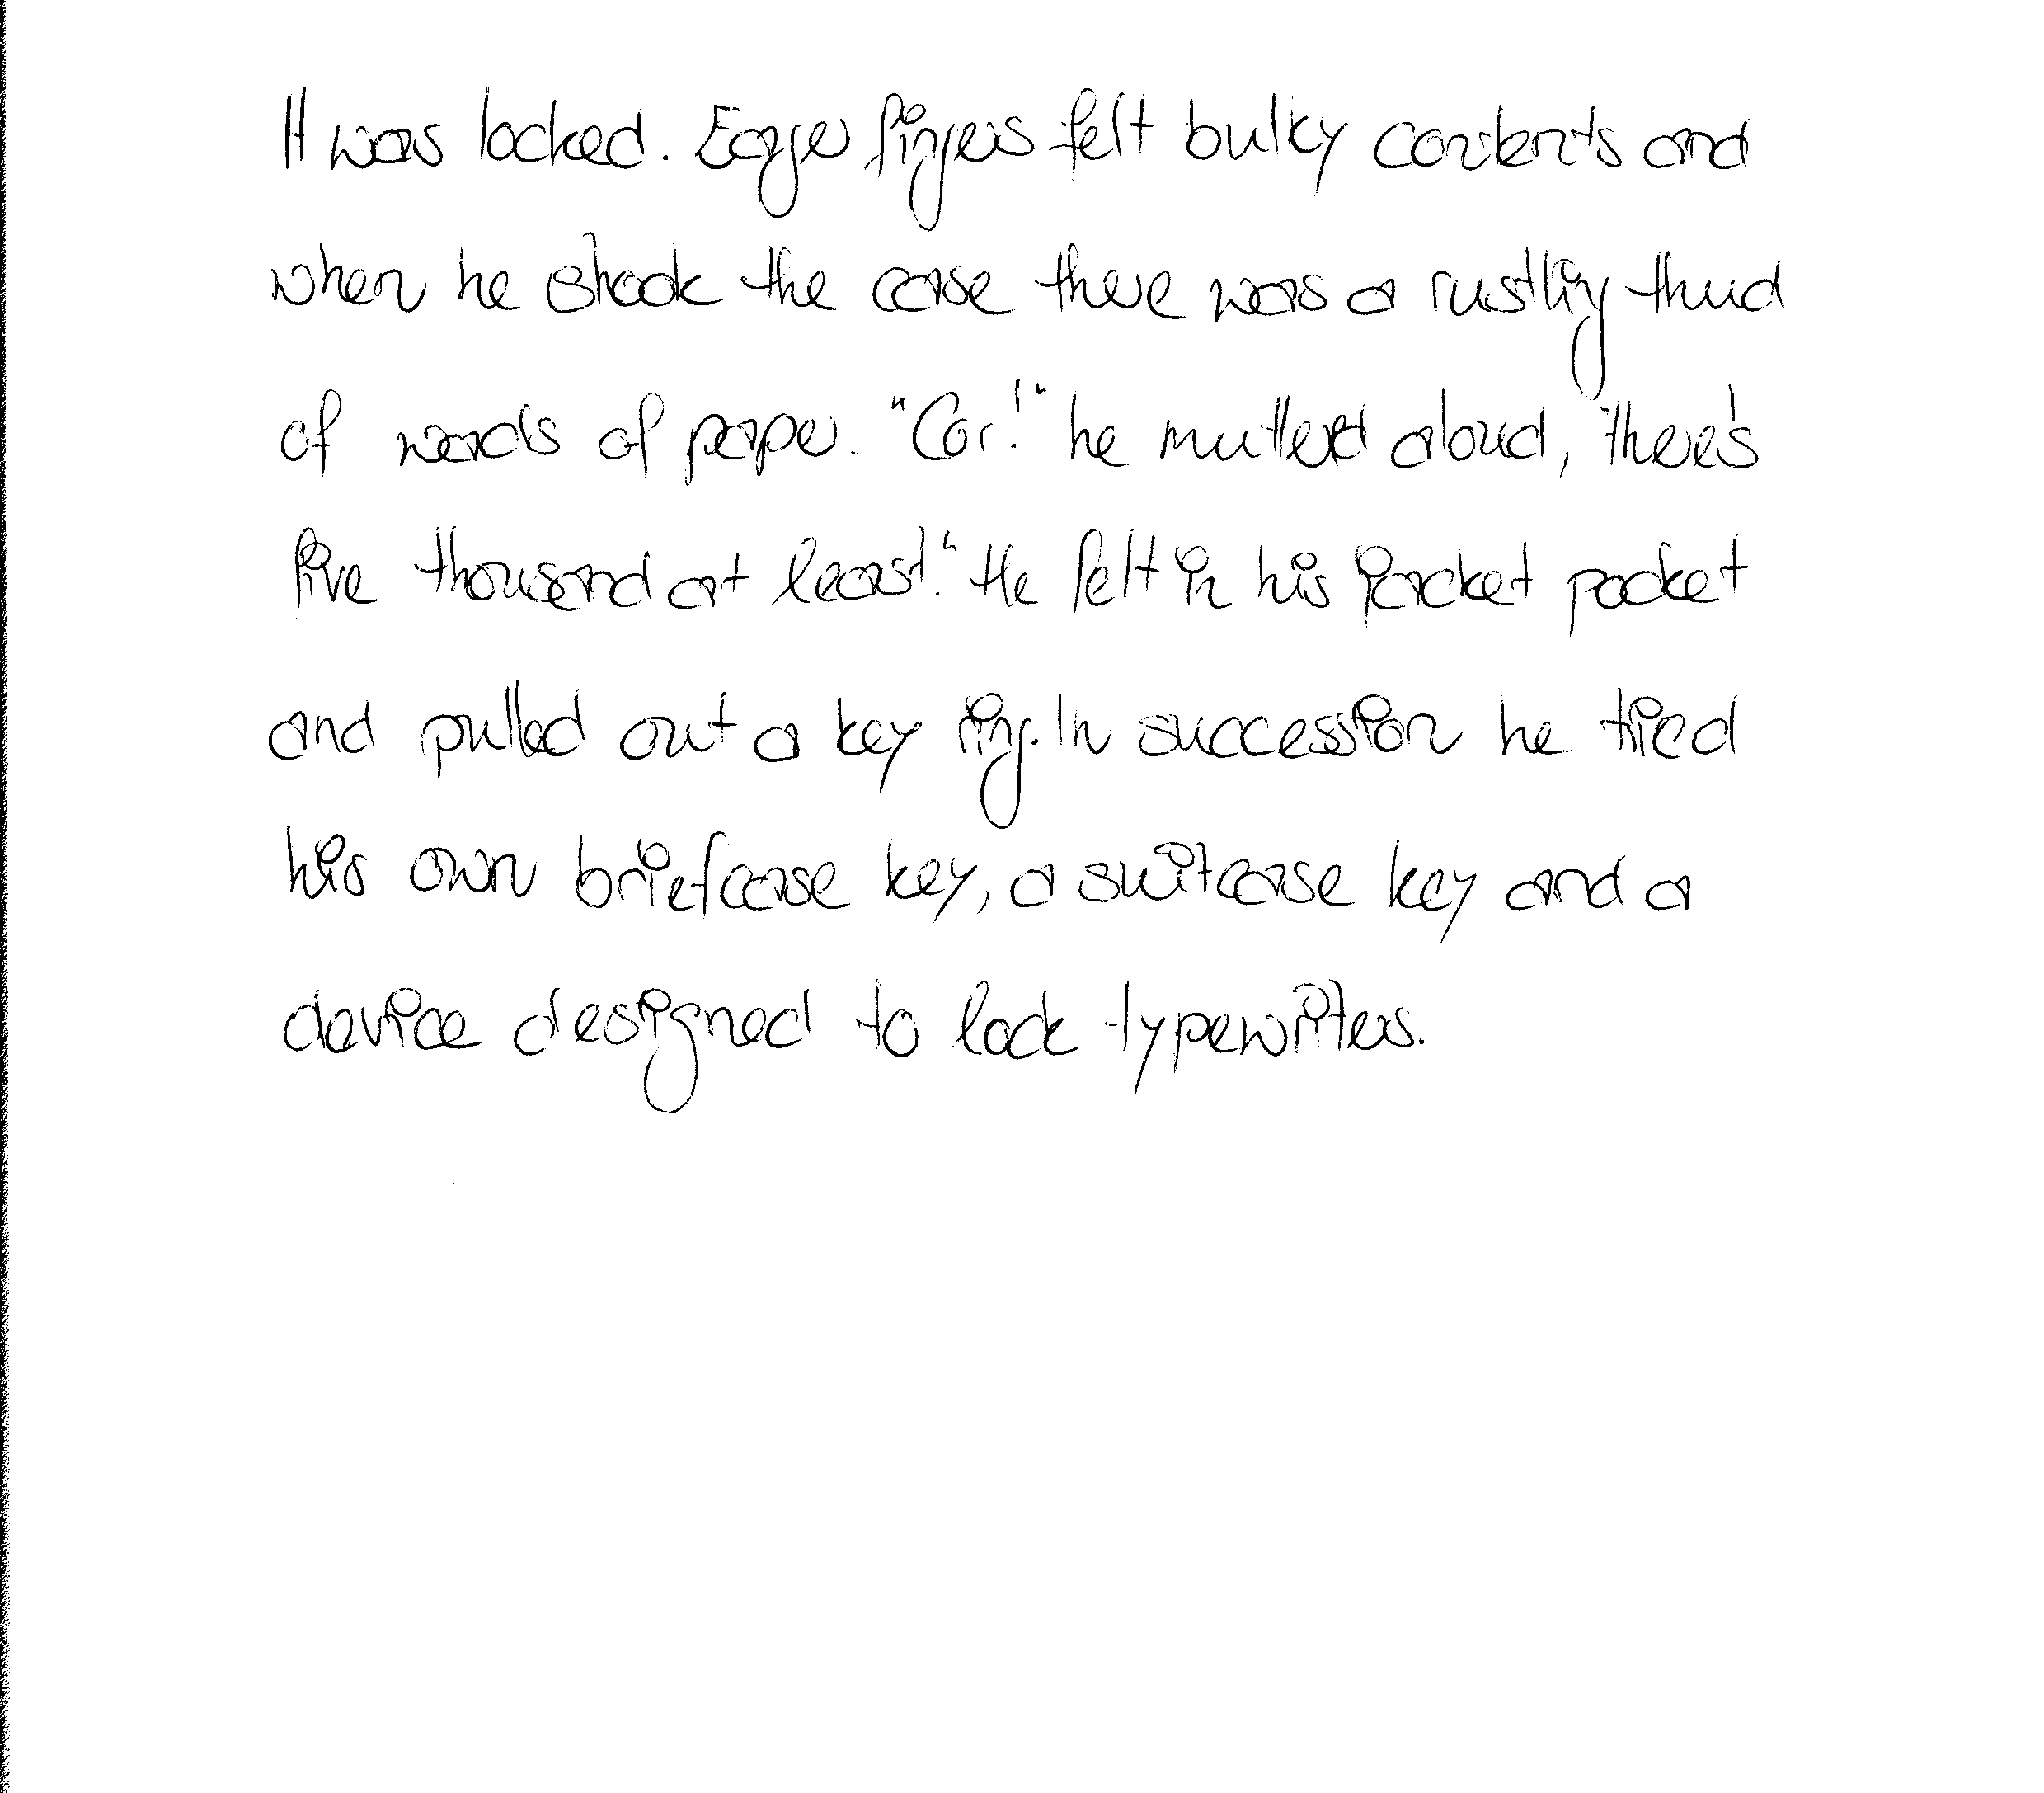 It was locked. Eager fingers felt bulky contents and
when he shook the case there was a rustling thud
of wads of paper. "Cor!" he muttered aloud, "there's
five thousand at least!" He felt in his jacket pocket
and pulled out a key ring. In succession he tried
his own briefcase key, a suitcase key and a
device designed to lock typewriters.